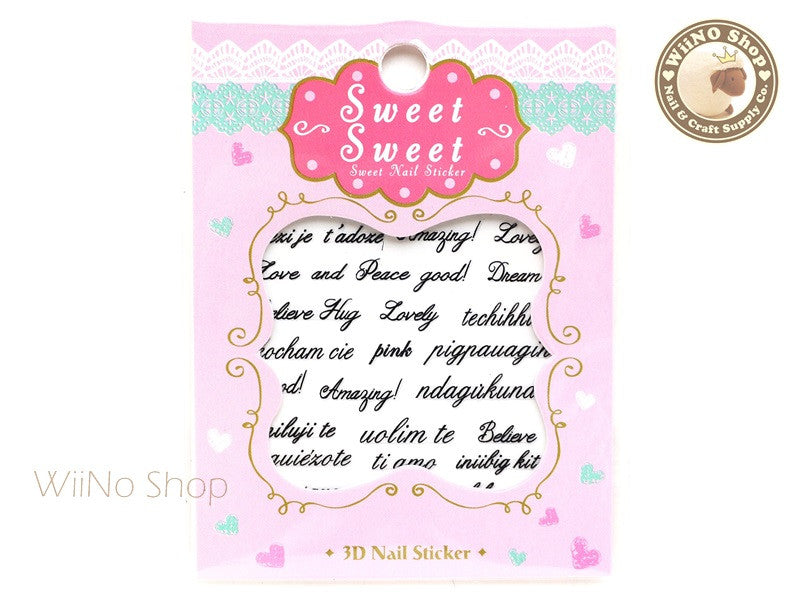 WiiNO Shop
Nail & Craft Supply Co.
Sweet
Sweet
Sweet Nail Sticker
zi je t'adoze Amazing! Lovely
Love and Peace good! Dream
elieve Hug Lovely techihhi
ocham cie pink pigpauagin
od! Amazing! ndagukuna
miluji te uolim te Believe
quiézote ti amo iniibig kit
WiiNo Shop
3D Nail Sticker